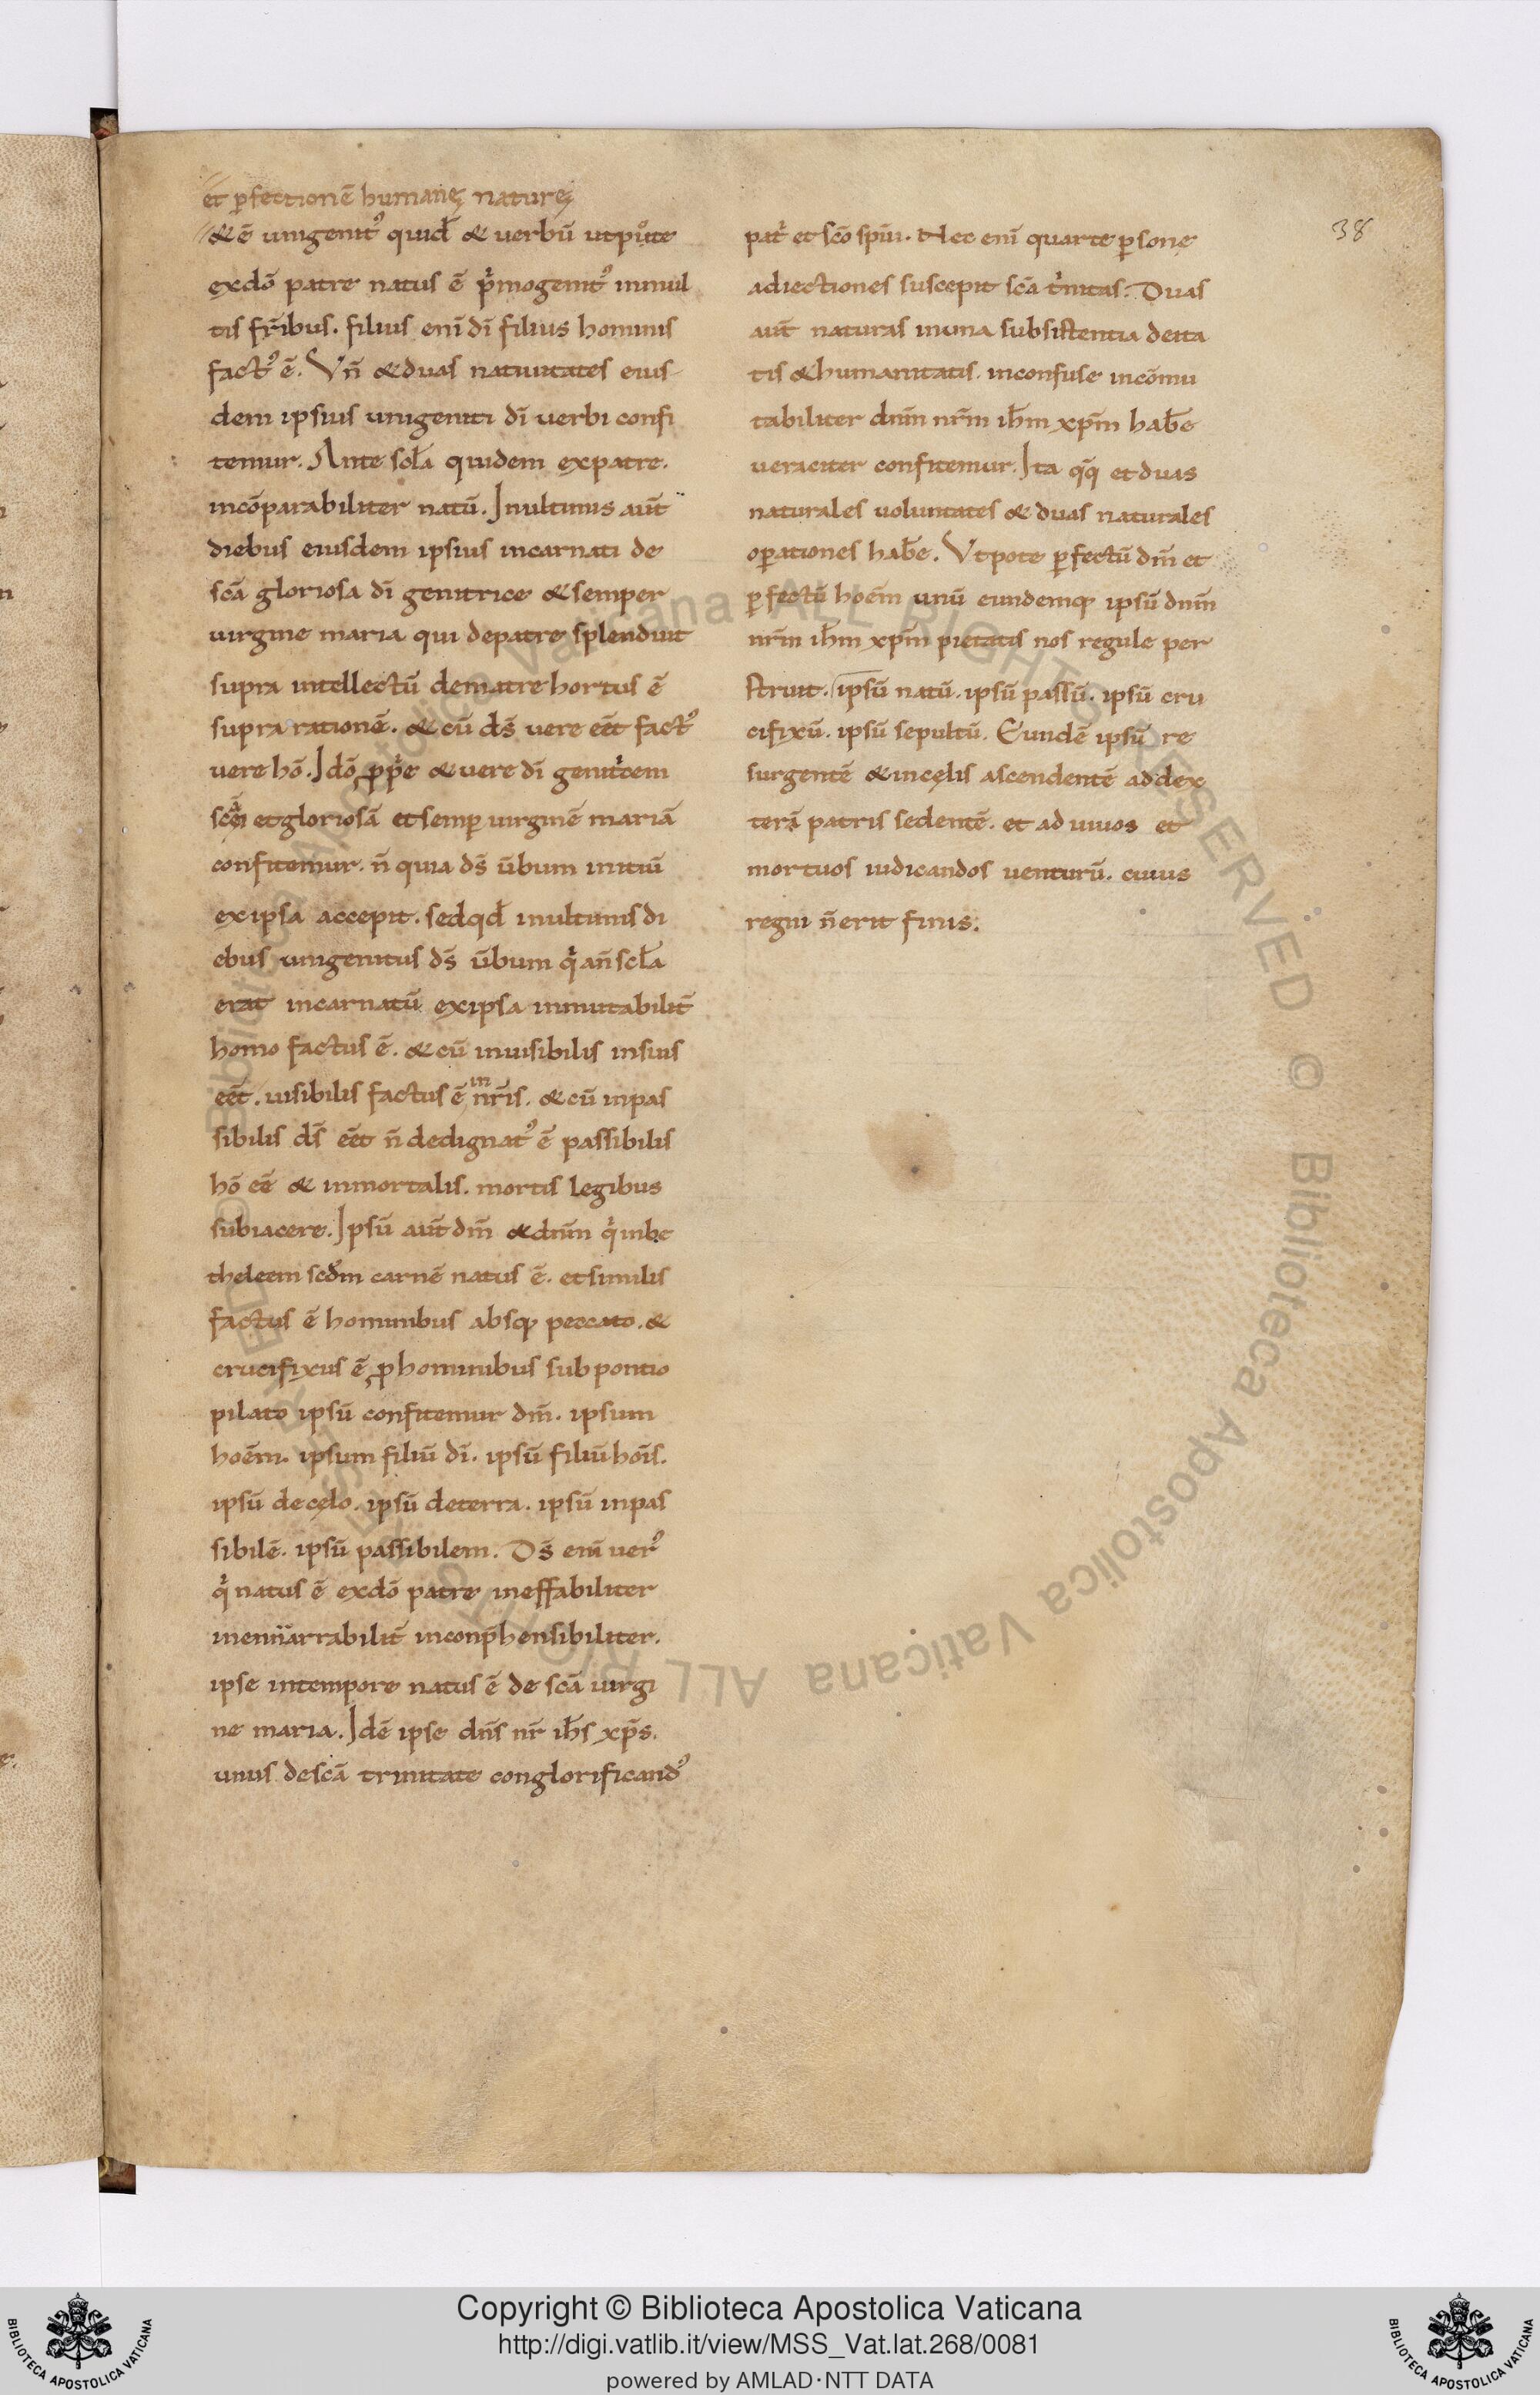 et ꝑfectionē humanę naturę
& ē unigenitꝰ quid̄ & uerbū utpute
exdō patre natus ē pͥmogenitꝰ inmul
tis fr̄ibus. filius eni̅ di̅ filius hominis
factꝰ ē. Vn̄ & duas natiuitates eius
dem ipsius unigeniti di̅ uerbi confi
temur. Ante scl̄a quidem expatre.
incōparabiliter natū. Inultimis aut̄
diebus eiusdem ipsius incarnati de
scā gloriosa di̅ genitrice & semper
uirgine maria qui depatre splenduit
supra intellectū dematre hortus ē
supra rationē. & cū ds̄ uere eēt factꝰ
uere hō. Idō ꝓpͥe & uere di̅ genitͥcem
et gloriosā et semꝑ uirginē mariā
confitemur. n̄ quia ds̄ ūbum initiū
ex ipsa accepit. sed qd̄ inultimis di
ebus unigenitus ds̄ ūbum qͥ an̄ scl̄a
erat incarnatū exipsa inmutabilit̄
homo factus ē. & cū inuisibilis insuis
eēt. uisibilis factus ē in nr̄is. & cū inpas
sibilis ds̄ eēt n̄ dedignatꝰ ē passibilis
hō eē & inmortalis. mortis legibus
subiacere. Ipsū aut̄ dm̄ & dnm̄ qͥ inbe
theleem scd̄m carnē natus ē. et similis
factus ē hominibus absqꝫ peccato. &
crucifixus ē ꝓ hominibus sub pontio
pilato ipsū confitemur dm̄. ipsum
hoēm. ipsum filiū di̅. ipsū filiū hoi̅s.
ipsū decęlo. ipsū deterra. ipsū inpas
sibilē. ipsū passibilem. Ds̄ eni̅ uerꝰ
qͥ natus ē exdō patre ineffabiliter
inenarrabilit̄ inconp̄hensibiliter.
ipse intempore natus ē de scā uirgi
ne maria. Idē ipse dn̄s nr̄ ih̄s xp̄s.
unus descā trinitate conglorificandꝰ
38
patͥ et scō spūi. Nec eni̅ quarte ꝑsonę
adiectiones suscepit scā tͥnitas. Duas
aut̄ naturas inuna subsistentia deita
tis & humanitatis. inconfuse incōmu
tabiliter dnm̄ nr̄m ih̄m xp̄m hab̄e
ueraciter confitemur. Ita qq̄ et duas
naturales uoluntates & duas naturales
oꝑationes hab̄e. Vtpote ꝑfectū dm̄ et
ꝑfectū hoēm unū eundemqꝫ ipsū dnm̄
nr̄m ih̄m xp̄m pietatis nos regule per
struit. ipsū natū. ipsū passū. ipsū cru
cifixū. ipsū sepultū. Eundē ipsū re
surgentē & incęlis ascendentē ad dex
terā patris sedentē. et ad uiuos et
mortuos iudicandos uenturū. cuius
regni n̄ erit finis.
© Biblioteca Apostolica Vaticana ALL RIGHTS RESERVED © Biblioteca Apostolica Vaticana ALL RIGHTS RESERVED
BIBLIOTECA APOSTOLICA VATICANA
Copyright © Biblioteca Apostolica Vaticana
http://digi.vatlib.it/view/MSS_Vat.lat.268/0081
powered by AMLAD·NTT DATA
BIBLIOTECA APOSTOLICA VATICANA